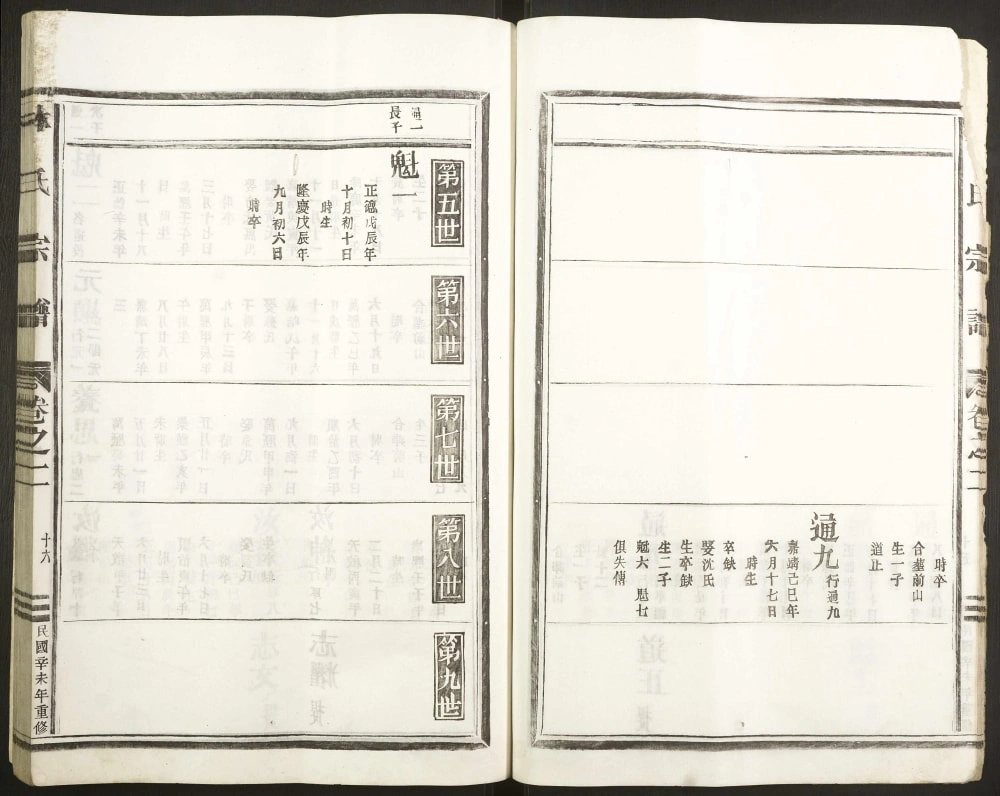 時卒
合墓前山
生一子
道正
通九 行通九
嘉靖己巳年
六月十七日
時生
卒缺
娶沈氏
生卒缺
生二子
魁六 魁七
俱失傳
氏宗譜
卷之二
第五世
第六世
第七世
第八世
第九世
通一
長子
魁一
正德戊辰年
十月初十日
時生
隆慶戊辰年
九月初六日
時卒
林氏宗譜
卷之二
十六
民國辛未年重修